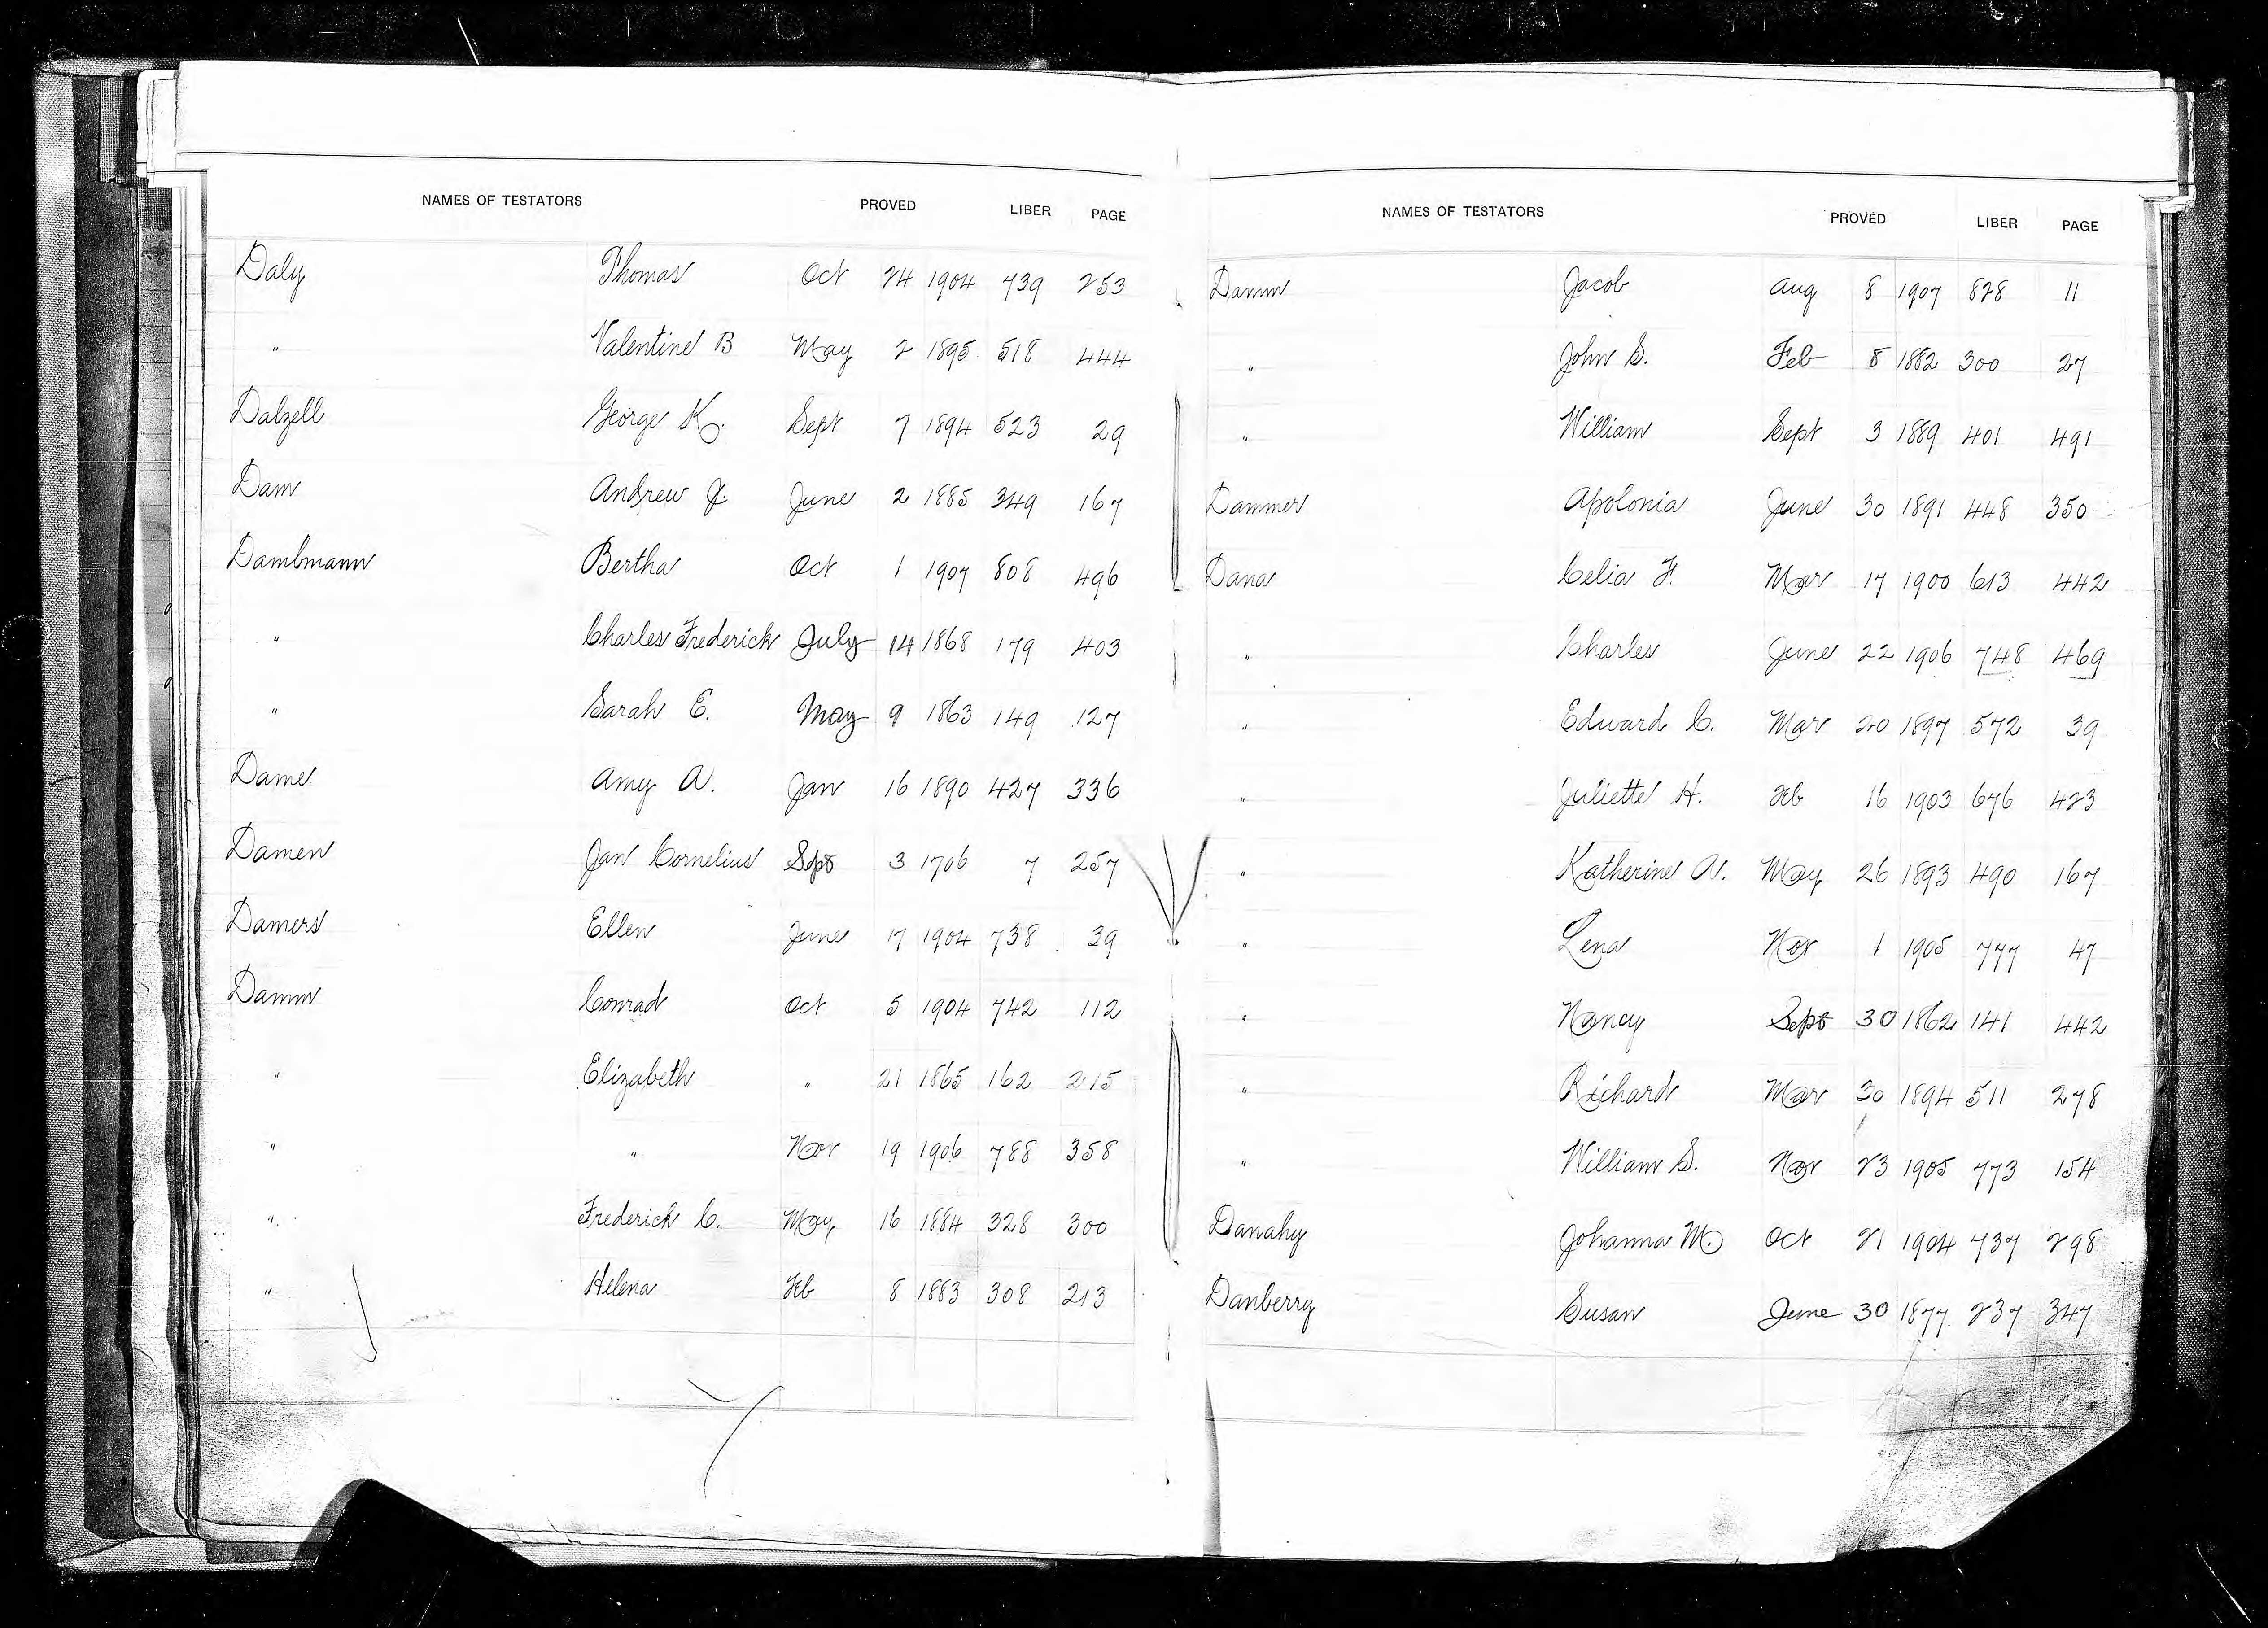 NAMES OF TESTATORS PROVED LIBER PAGE
Daly Thomas Oct 24 1904 739 253
" Valentine B May 2 1895 518 444
Dalzell George K. Sept 7 1894 523 29
Dam Andrew J. June 2 1885 349 167
Dambmann Bertha Oct 1 1907 808 496
" Charles Frederick July 14 1868 179 403
" Sarah E. May 9 1863 149 127
Dame Amy A. Jan 16 1890 427 336
Damen Jan Cornelius Sept 3 1706 7 257
Damers Ellen June 17 1904 738 39
Damm Conrad Oct 5 1904 742 112
" Elizabeth " 21 1865 162 215
" " Nov 19 1906 788 358
" Frederick C. May 16 1884 328 300
" Helena Feb 8 1883 308 213
NAMES OF TESTATORS PROVED LIBER PAGE
Damm Jacob Aug 8 1907 828 11
" John S. Feb 8 1882 300 27
" William Sept 3 1889 401 491
Dammer Apolonia June 30 1891 448 350
Dana Celia F. Mar 17 1900 613 442
" Charles June 22 1906 748 469
" Edward C. Mar 20 1897 572 39
" Juliette H. Feb 16 1903 676 423
" Katherine A. May 26 1893 490 167
" Lena Nov 1 1905 777 47
" Nancy Sept 30 1862 141 442
" Richard Mar 30 1894 511 278
" William S. Nov 23 1905 773 154
Danahy Johanna M. Oct 21 1904 737 298
Danberry Susan June 30 1877 237 347